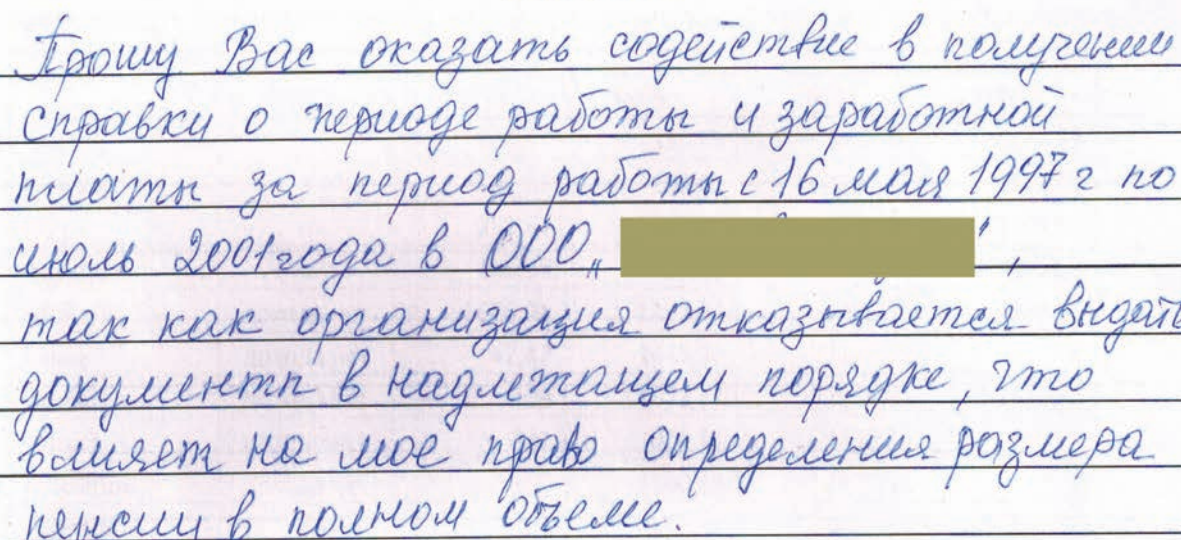 Прошу Вас оказать содействие в получении
справки о периоде работы и заработной
платы за период работы с 16 мая 1997 г по
июль 2001 года в ООО „ ",
так как организация отказывается выдать
документы в надлежащем порядке, что
влияет на мое право определения размера
пенсии в полном объеме.